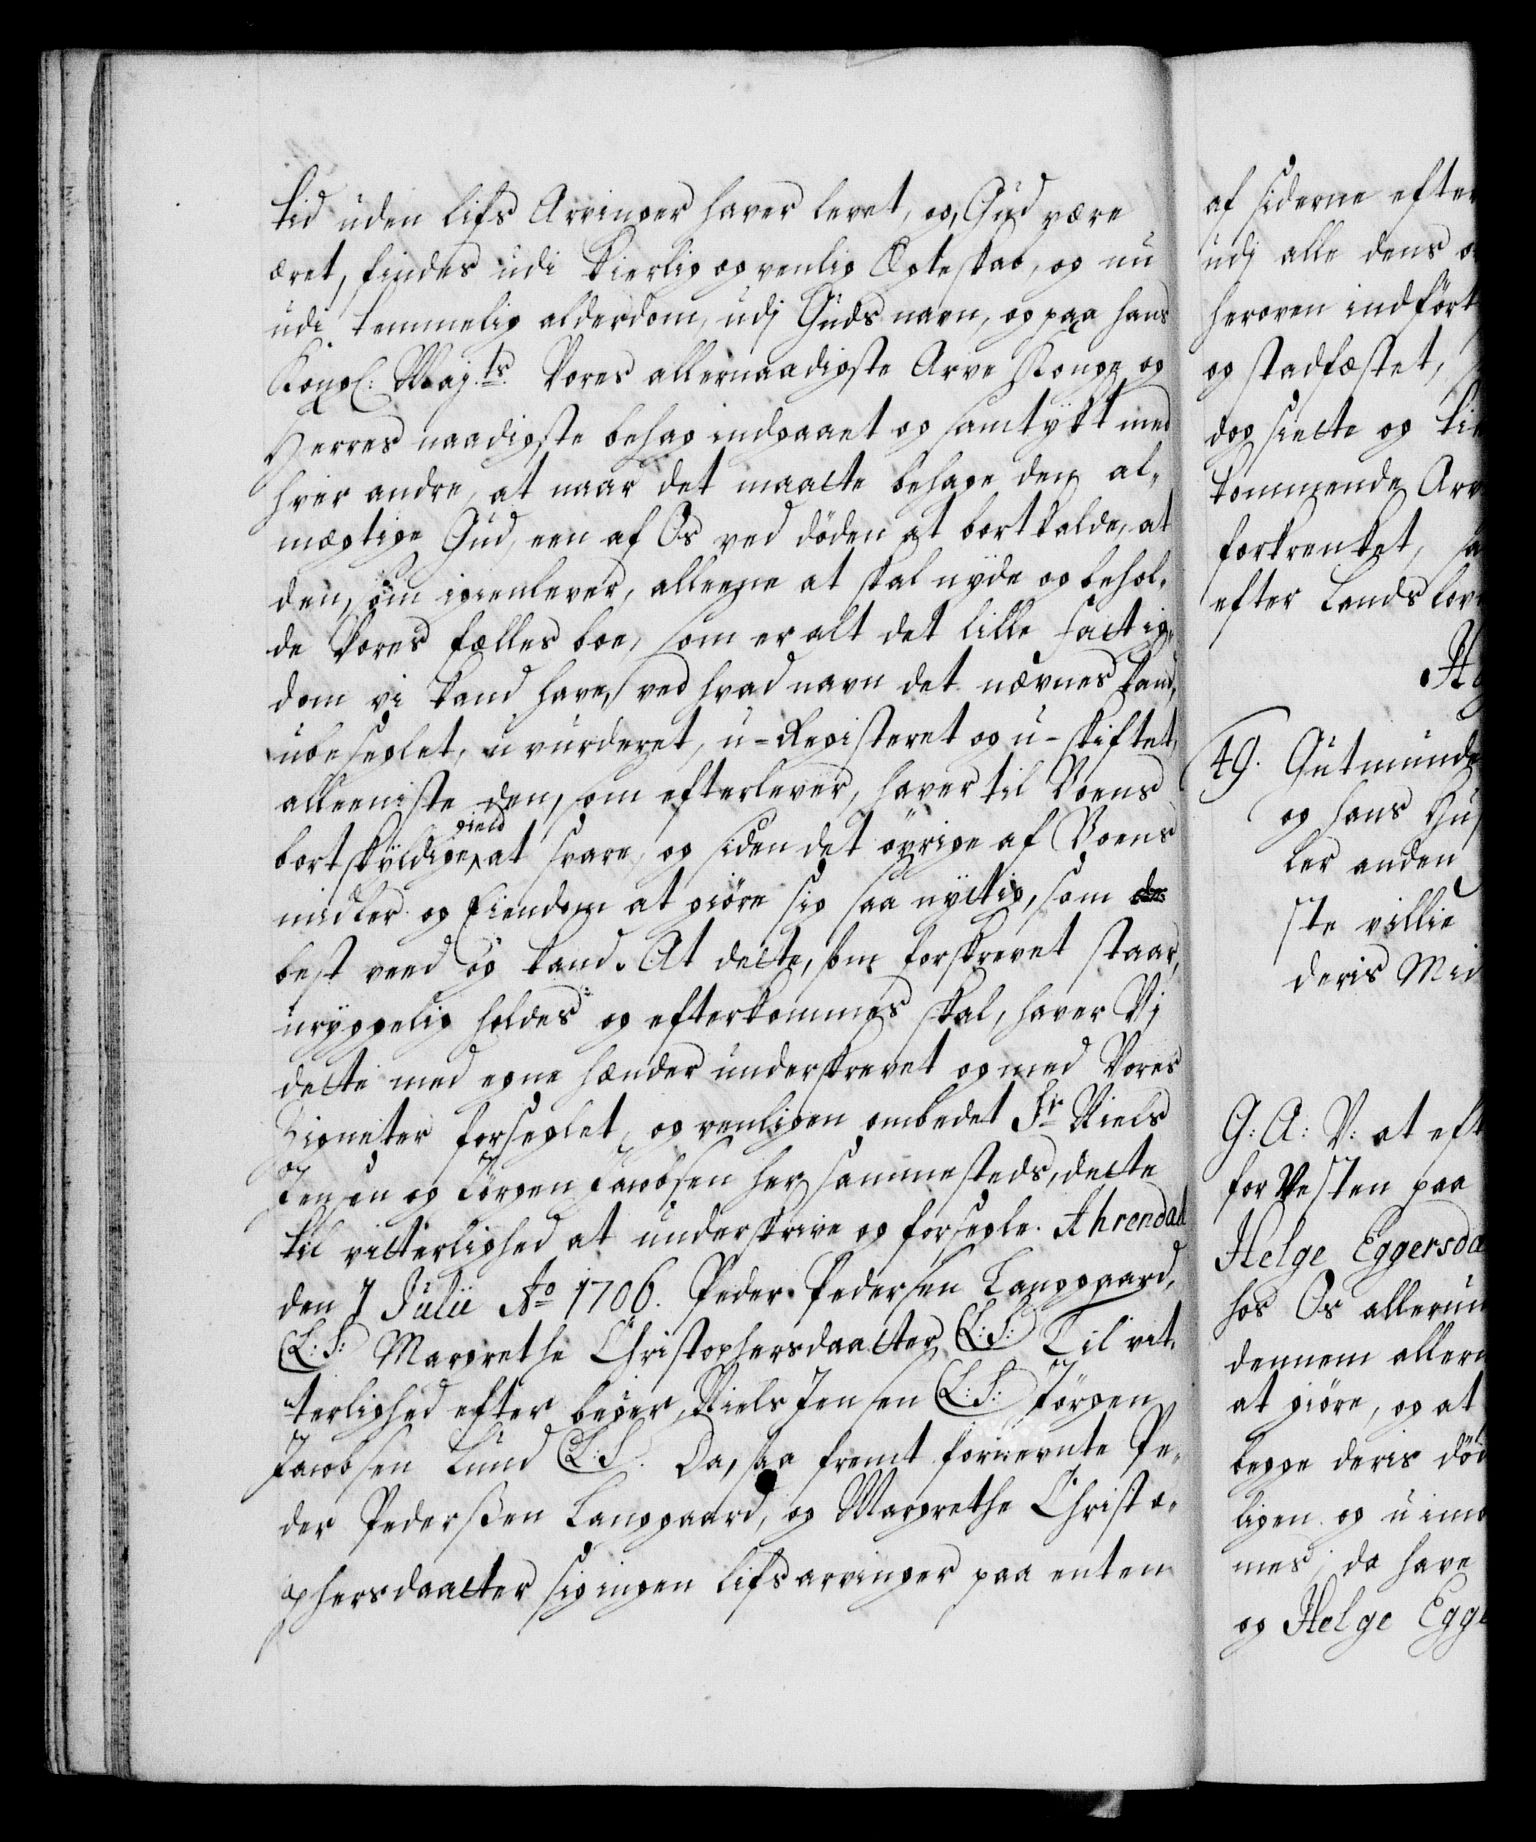 tid uden lifs Arvinger haver levet, og, Gud være
æret, findes udi kierlig og venlig Ægteskab, og nu
udi temmelig alderdom, udj Guds navn, og paa hans
Kongl: Maj:ts Vores allernaadigste Arve Konge og
Herres naadigste behag indgaaet og samtykt med
hver andre, at naar det maatte behage den al-
mægtige Gud, een af Os ved döden at bortkalde, at
den, som igienlever, alleene at skal nyde og behol-
de Vores fælles boe, som er alt det lille fattig-
dom vi kand have, ved hvad navn det nævnes kand,
ubeseglet, uvurderet, u-Registeret og u-skiftet,
alleeniste den, som efterlever, haver til Boens
bortskyldige gield at svare, og siden det øvrige af Boens
midler og Eiendom at giöre sig saa nyttig, som
best veed og kand. At dette, som forskrevet staar,
uryggelig holdes og efterkommes skal, haver Vj
dette med egne hænder underskrevet og med Vores
Zigneter forseglet, og venligen ombedet Sr Niels
Jensen og Jörgen Jacobsen her sammesteds, dette
til vitterlighed at underskrive og forsegle. Ahrendal
den 7 Julii Ao 1706. Peder Pedersen Langgaard,
(L:S: Margrethe Christophersdaatter (L:S: Til vit-
terlighed efter begier, Niels Jensen (L:S: Jörgen
Jacobsen Lund (L:S. Da, saa fremt fornevnte Pe-
der Pederßen Langgaard, og Margrethe Christo-
phersdaatter sig ingen lifsarvinger paa enten
af siderne efter
udj alle dens
heroven indfört
og stadfæstet,
dog siette og
kommende Arv
forkrenket, sa
efter Landslov
49. Gutmunde
og hans Hus
ler anden
ste villie
deris Mid
G: A: V: at eft
for Vesten paa
Helge Eggersda
hos Os allerun
dennem allern
at giöre, og at
begge deris död
ligen og uimo
mes; da have
og Helge Egge